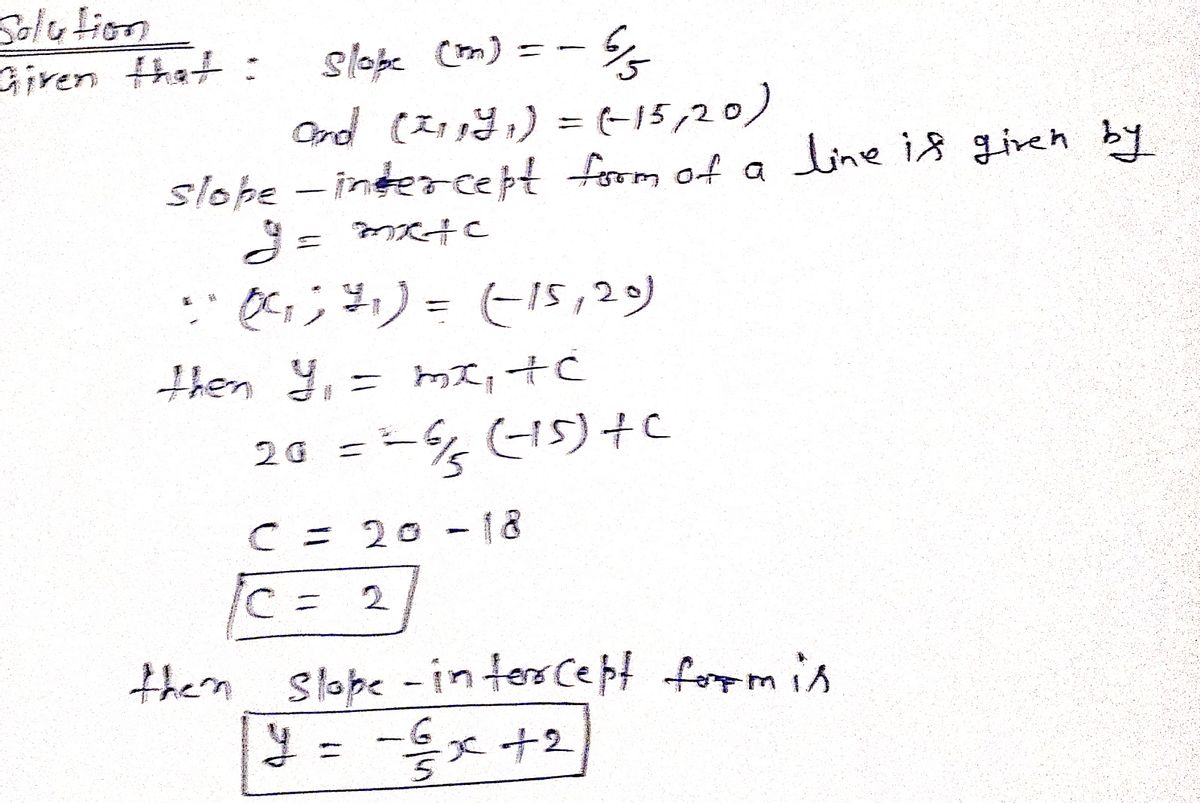 Solution
Given that : Slope (m) = - 6/5
and (x₁, y₁) = (-15, 20)
slope - intercept form of a line is given by
y = mx + c
∵ (x₁; y₁) = (-15, 20)
then y₁ = mx₁ + c
20 = - 6/5 (-15) + c
C = 20 - 18
C = 2
then slope - intercept form is
y = - 6/5 x + 2